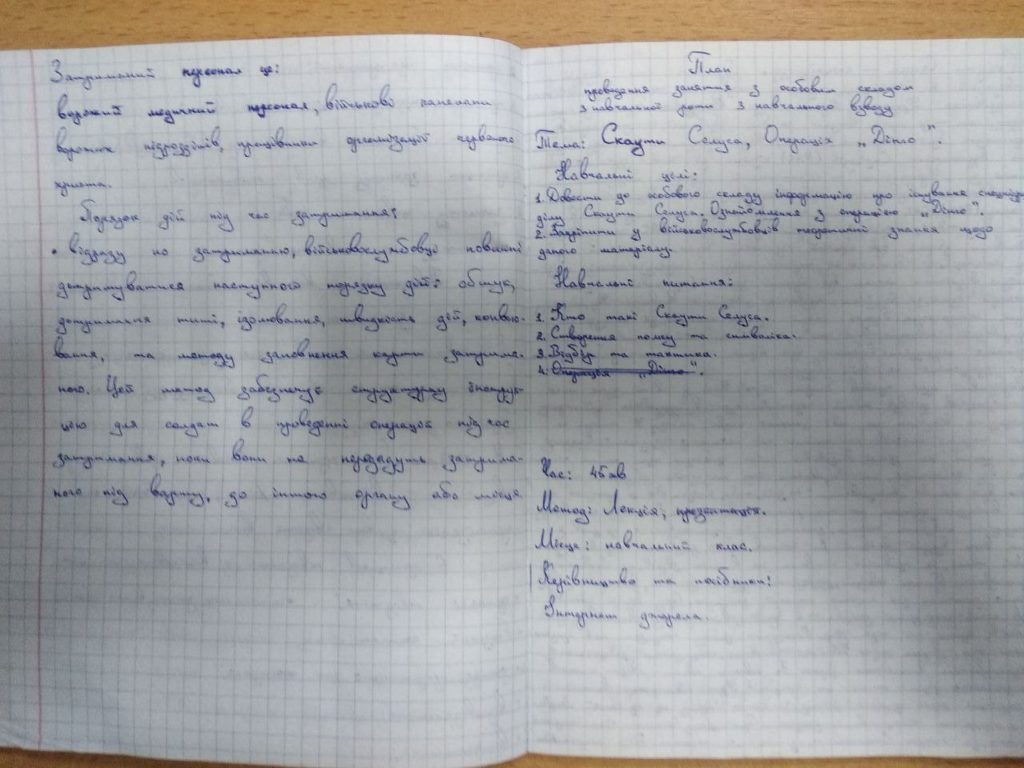 Затриманий персонал це:
ворожий медичний персонал, військові капелани
ворожих підрозділів, працівники організації червоного
христа.
Порядок дій під час затримання:
• Відразу по затриманню, військовослужбовці повинні
дотримуватися наступного порядку дій: обшук,
дотримання тиші, ізолювання, швидкість дій, конвою-
вання, та методу заповнення карти затрима-
ного. Цей метод забезпечує структурну інструк-
цію для солдат в проведенні операцій під час
затримання, поки вони не передадуть затрима-
ного під варту, до іншого органу або місця
План
проведення заняття з особовим складом
з навчальної роти з навчального взводу
Тема: Скаути Селуса, Операція „Дінго".
Навчальні цілі:
1. Довести до особового складу інформацію про існування спецпідроз
ділу Скаути Селуса. Ознайомлення з операцією „Дінго".
2. Закріпити у військовослужбовців теоретичні знання щодо
даного матеріалу.
Навчальні питання:
1. Хто такі Скаути Селуса.
2. Створення полку та символіка.
3. Відбір та тактика.
4. Операція „Дінго".
Час: 45 хв
Метод: Лекція, презентація.
Місце: навчальний клас.
Керівництво та посібники:
Інтернет джерела.